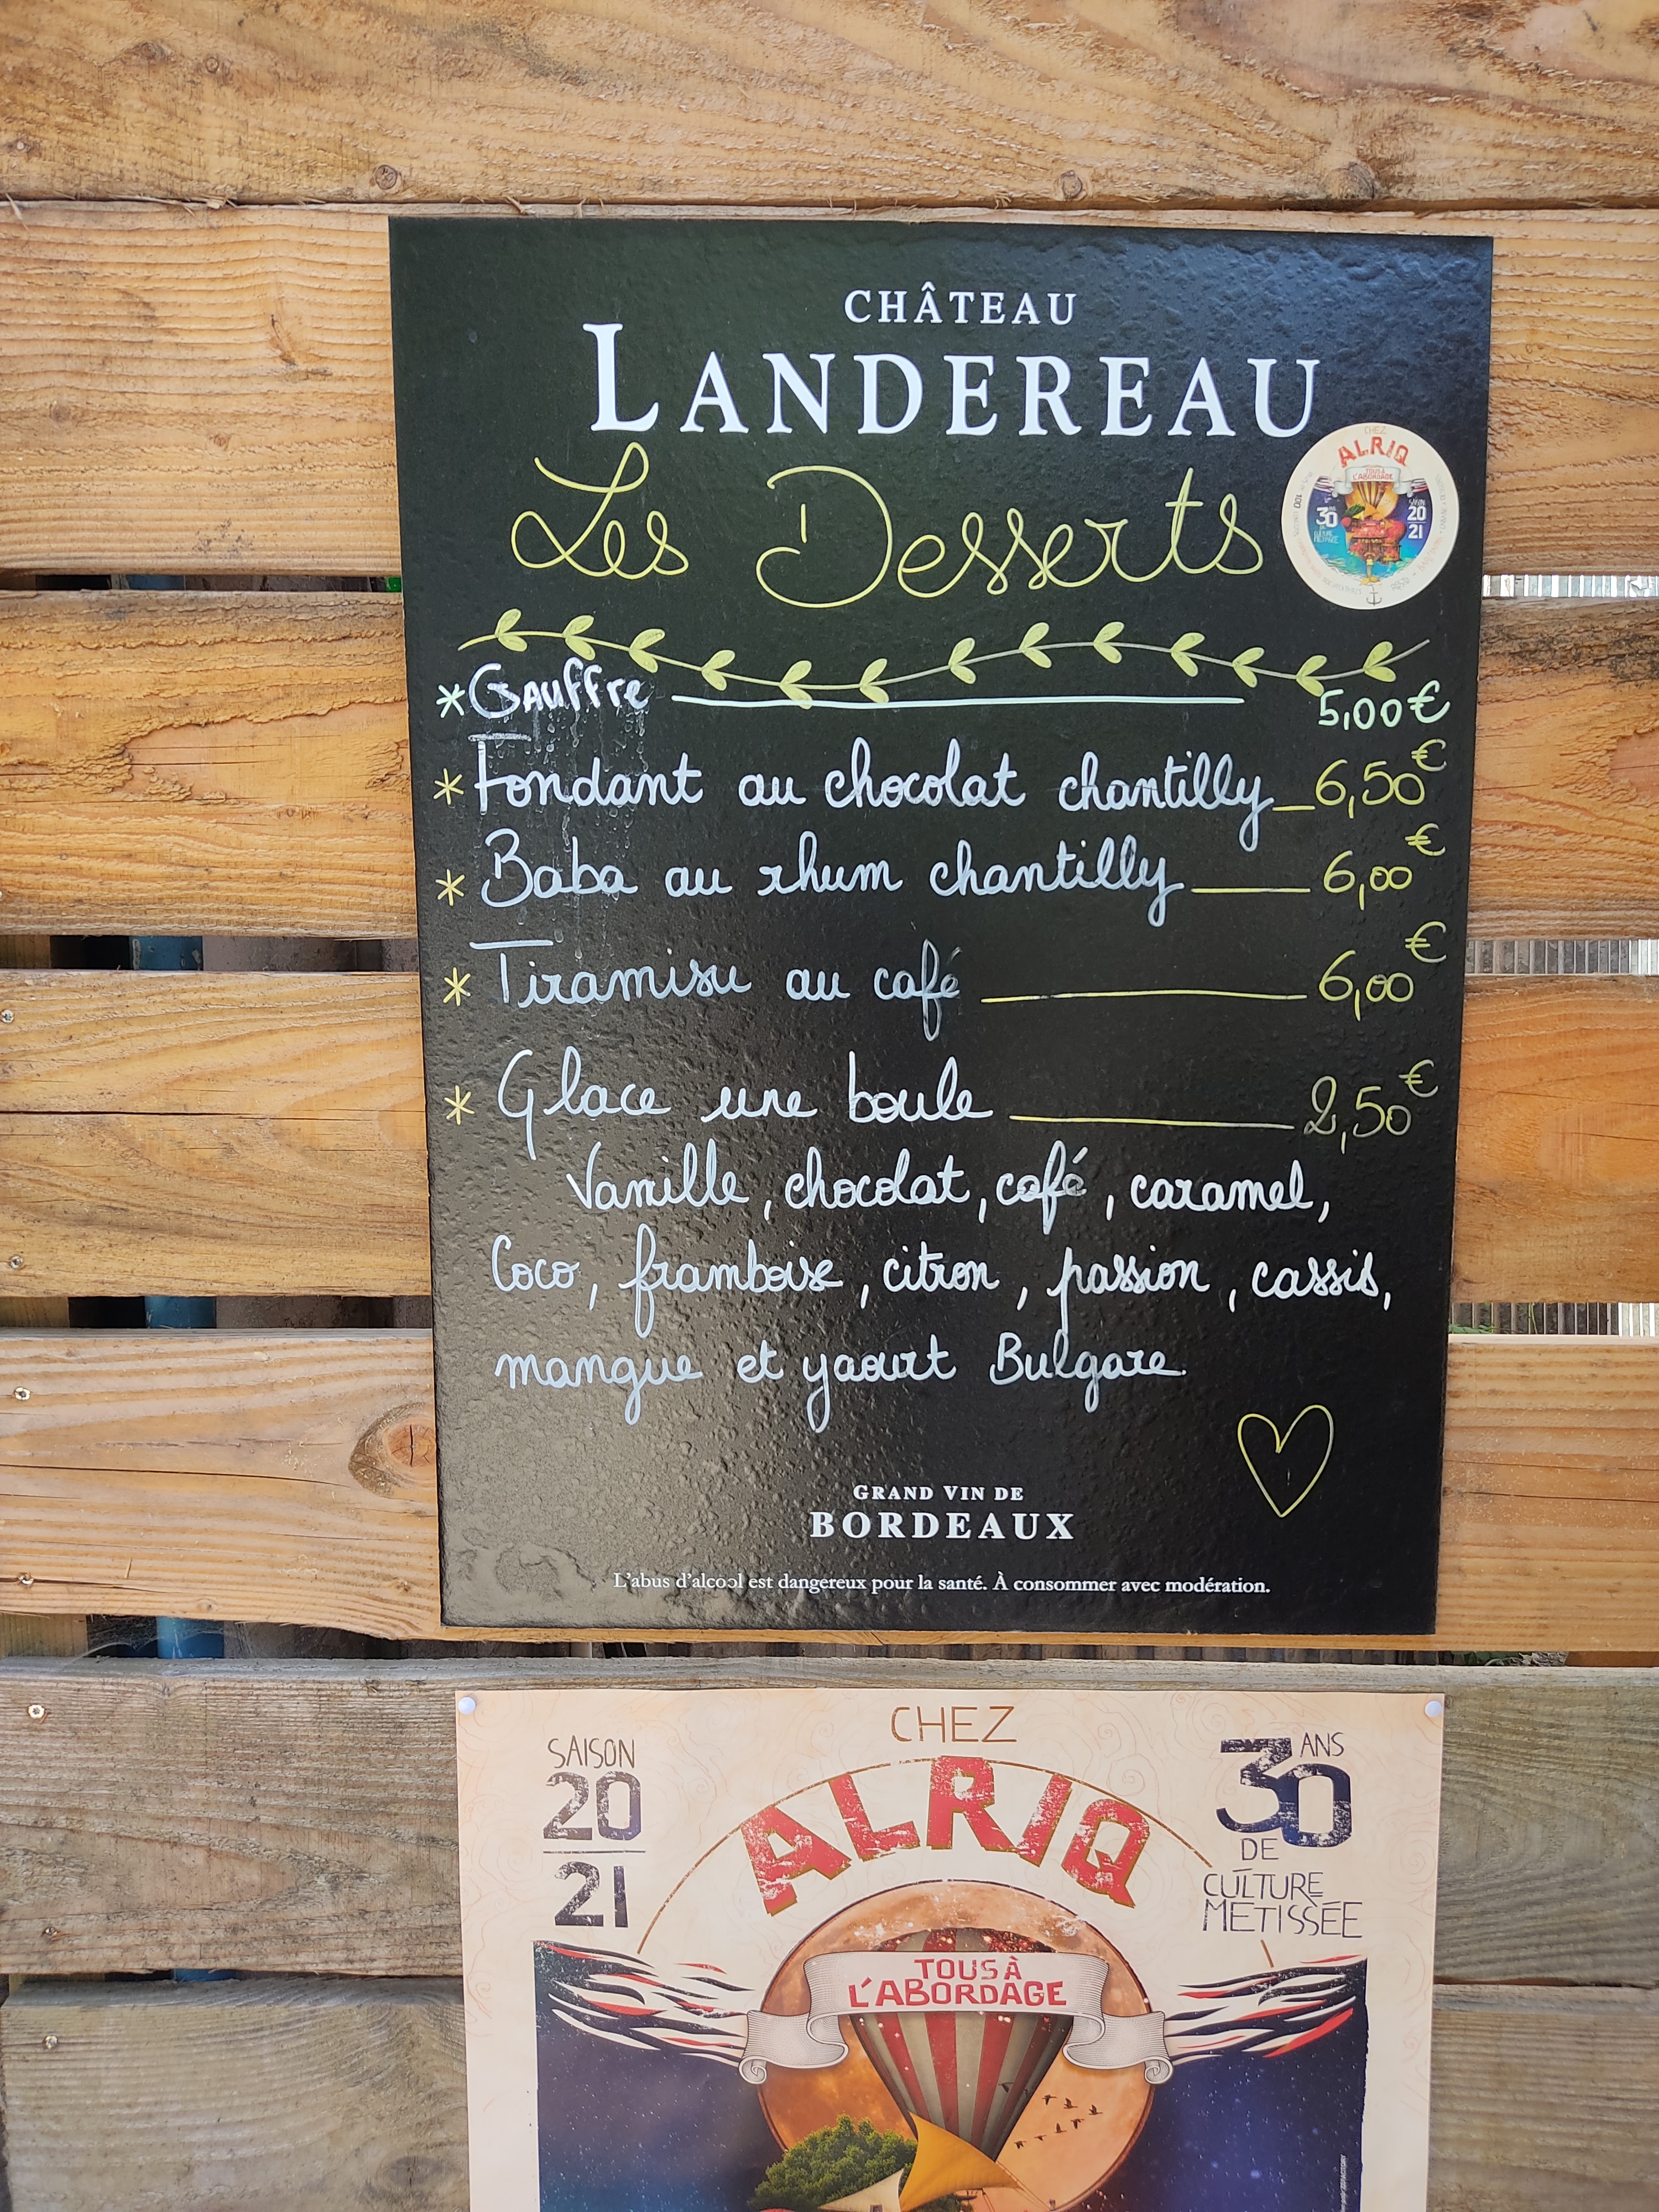 CHÂTEAU
LANDEREAU
Les Desserts
CHEZ
ALRIQ
TOUS À
L'ABORDAGE
30
SAISON
20
21
*Gauffre 5,00€
* Fondant au chocolat chantilly 6,50€
* Baba au rhum chantilly 6,00€
* Tiramisu au café 6,00€
* Glace une boule 2,50€
Vanille, chocolat, café, caramel,
Coco, framboise, citron, passion, cassis,
mangue et yaourt Bulgare.
GRAND VIN DE
BORDEAUX
L'abus d'alcool est dangereux pour la santé. À consommer avec modération.
CHEZ
ALRIQ
SAISON
20
21
30 ANS
DE
CULTURE
METISSÉE
TOUS À
L'ABORDAGE